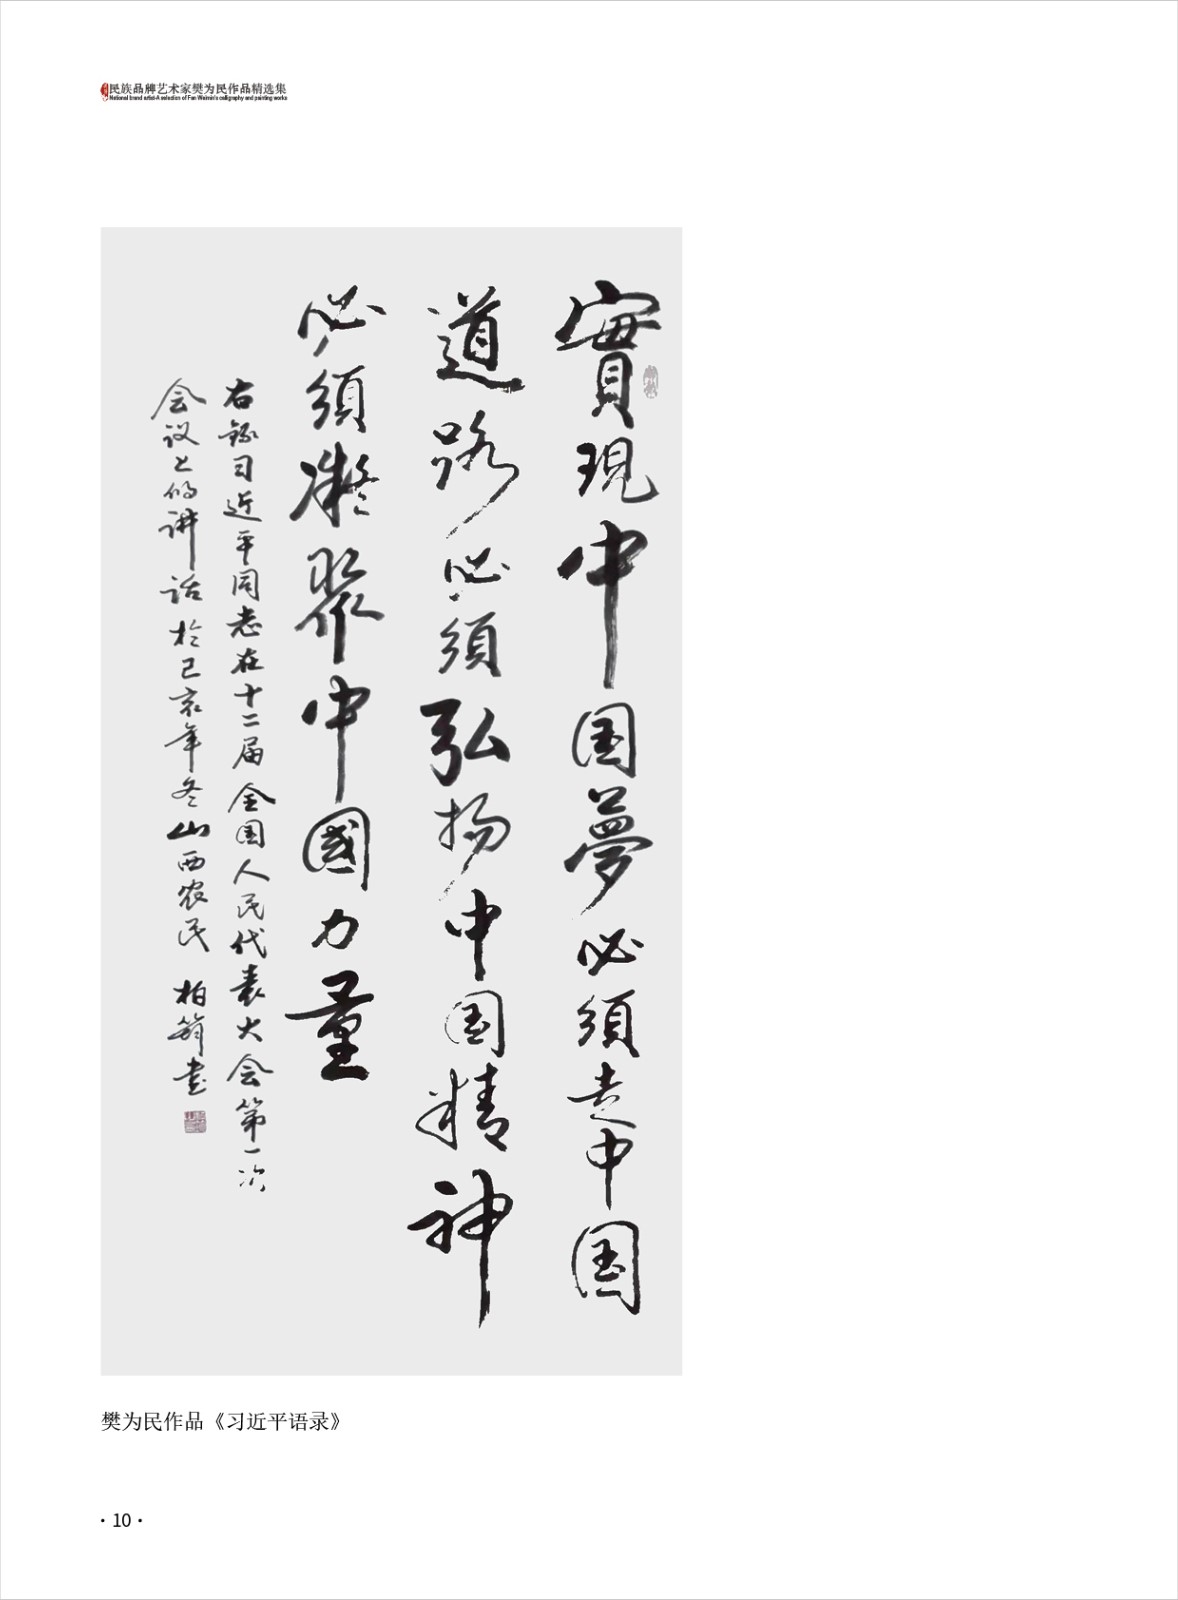 民族品牌艺术家樊为民作品精选集
National brand artist-A selection of Fan Weimin's calligraphy and painting works
實現中国夢必须走中国
道路必须弘扬中国精神
必须凝聚中國力量
右録习近平同志在十二届全国人民代表大会第一次
会议上的讲话於己亥年冬山西农民柏筠书
樊为民作品《习近平语录》
·10·